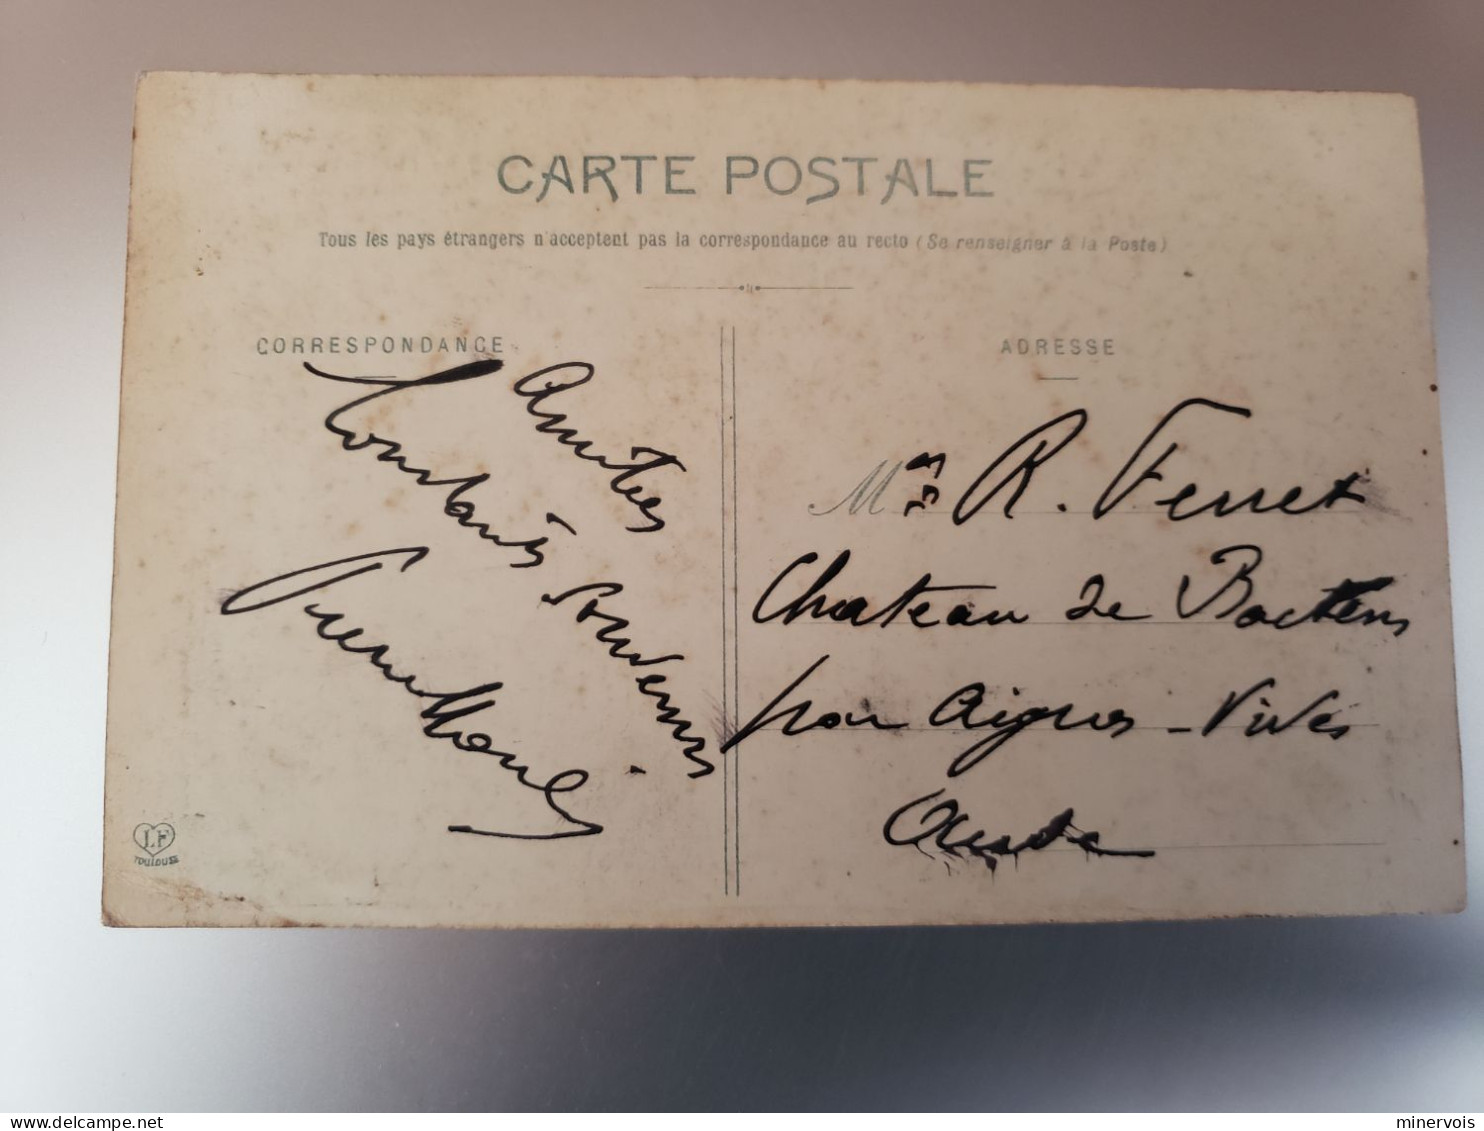 CARTE POSTALE
Tous les pays étrangers n'acceptent pas la correspondance au recto (Se renseigner à la Poste)
CORRESPONDANCE
Amitiés
Constants Souvenirs
ADRESSE
R. Ferret
Chateau de
par Aigues-Vives
Aude
LF
TOULOUSE
minervois